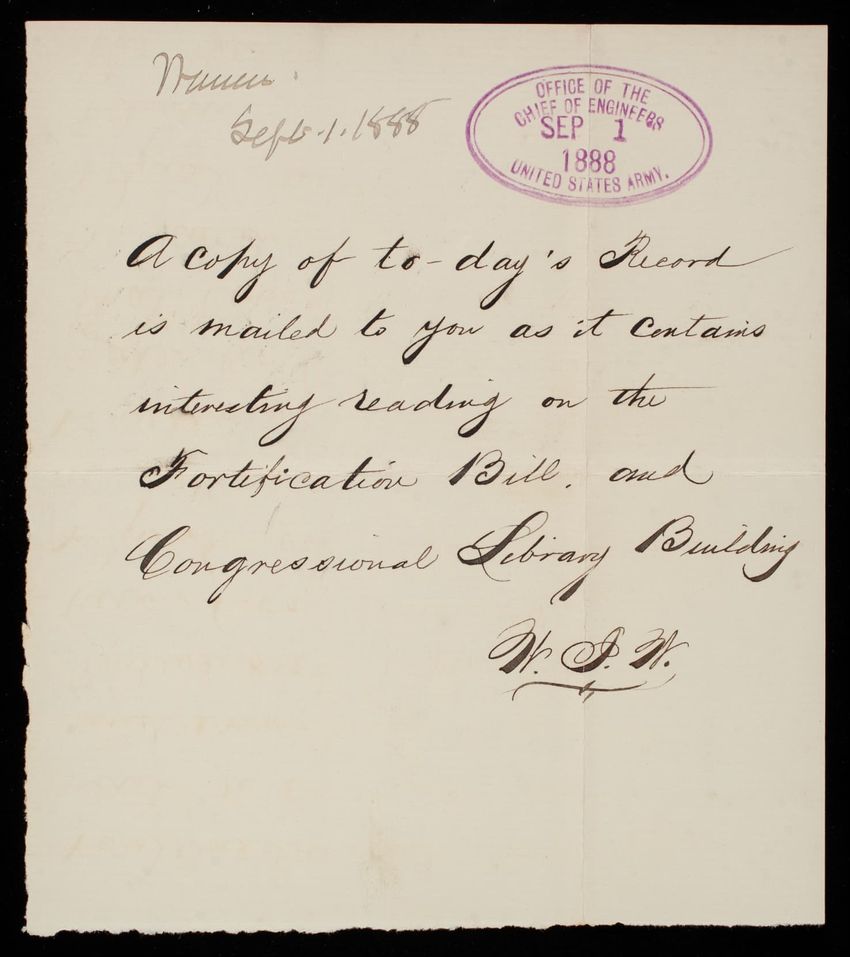 Sept. 1. 1888
OFFICE OF THE
CHIEF OF ENGINEERS
SEP 1
1888
UNITED STATES ARMY.
A copy of to-day's Record
is mailed to you as it contains
interesting reading on the
Fortification Bill. and
Congressional Library Building
W. J. W.